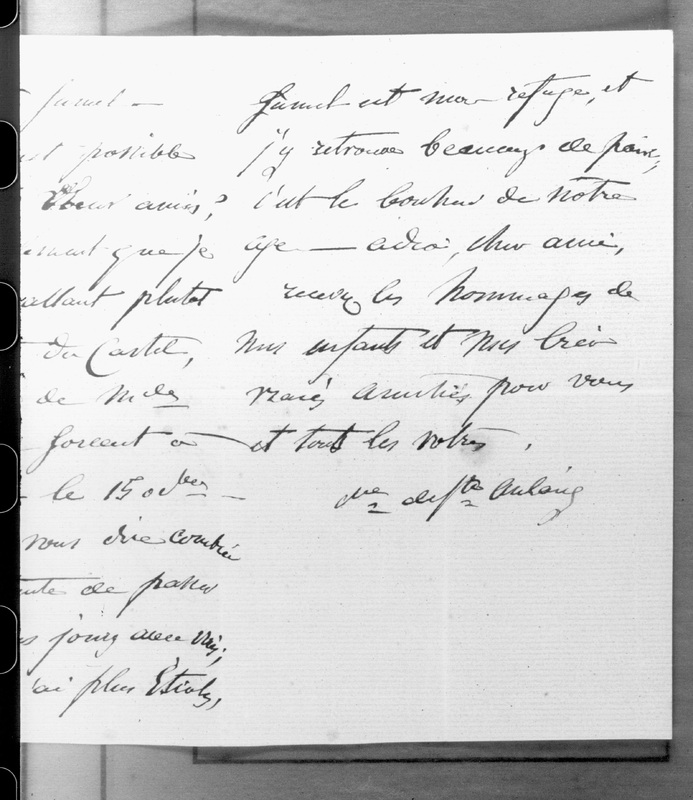 Jumel —
possible
amis ?
que je
allant plutôt
du Castel,
de Mde
forcent à
le 15 8bre —
vous dire combien
de passer
jours avec vous,
ai plus Etioles,
Jumel est mon refuge, et
j'y retrouve beaucoup de paix,
c'est le bonheur de notre
age — adieu, cher ami,
recevez les hommages de
nos enfants et mes bien
vraies amitiés pour vous
et tout les votres.
de Ste Aulaire